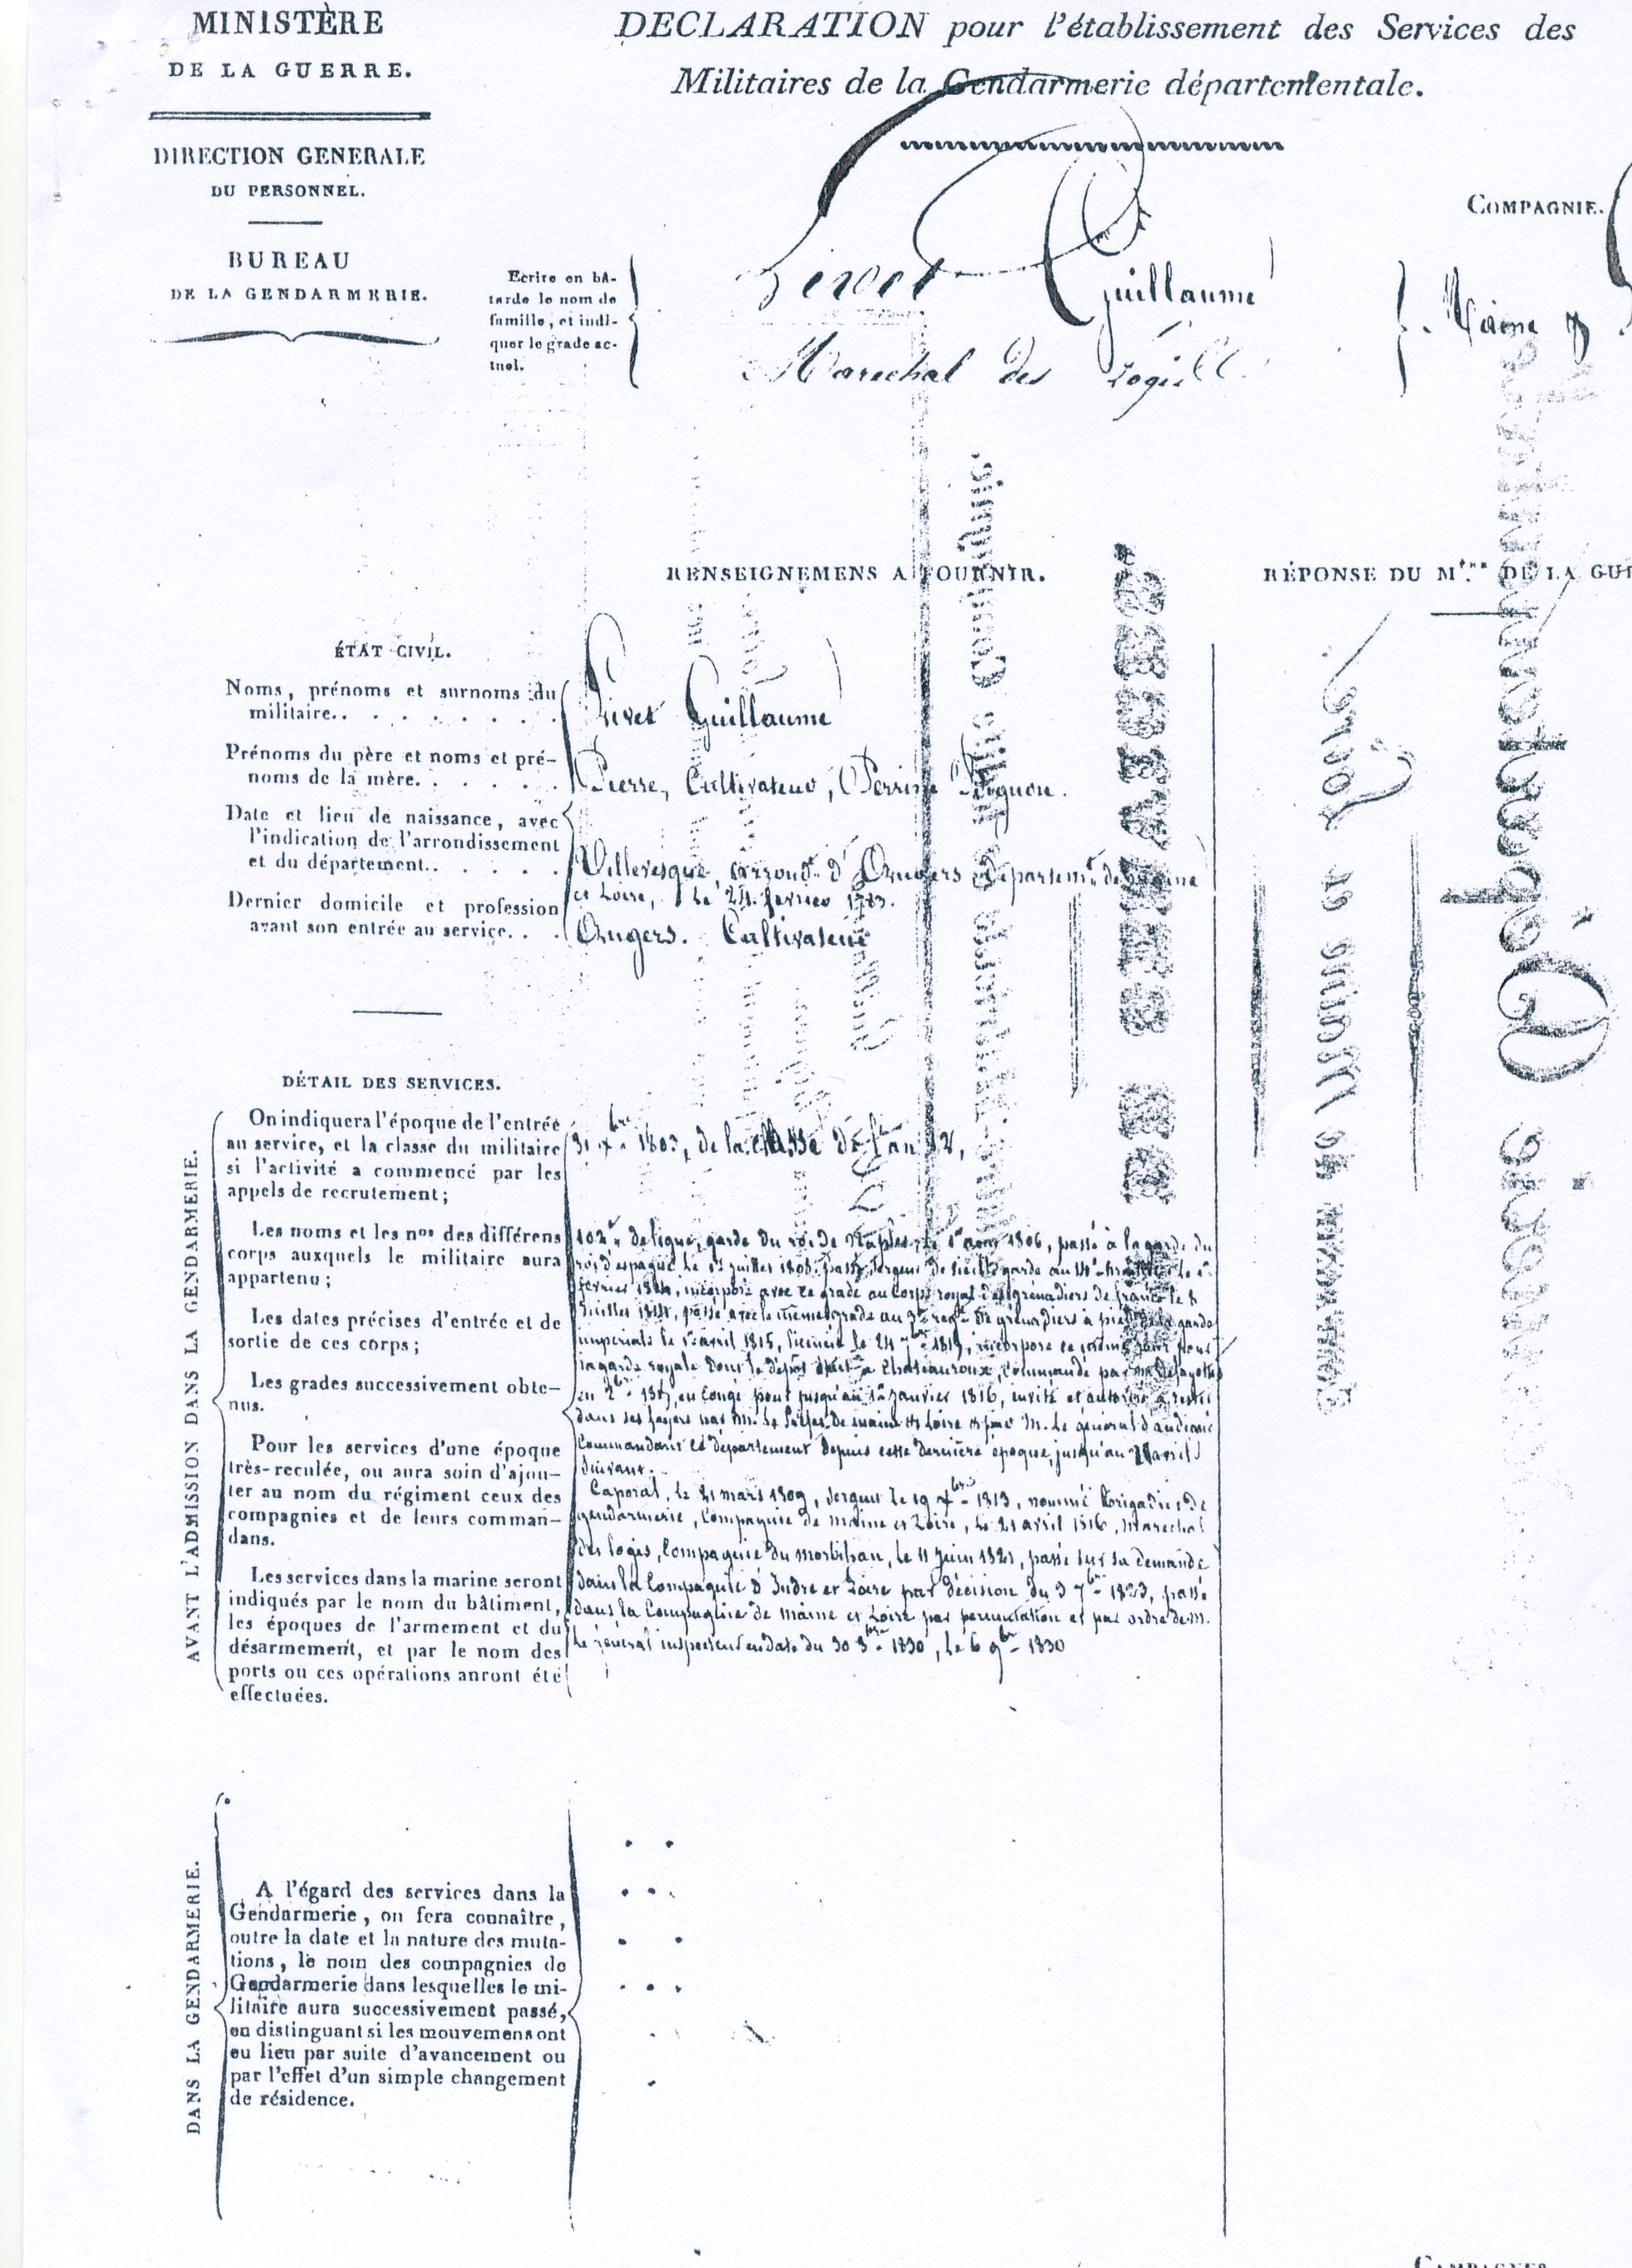 MINISTÈRE
DE LA GUERRE.
DIRECTION GENERALE
DU PERSONNEL.
BUREAU
DE LA GENDARMERIE.
DECLARATION pour l'établissement des Services des
Militaires de la Gendarmerie départementale.
COMPAGNIE.
Ecrire en bâ-
tarde le nom de
famille, et indi-
quer le grade ac-
tuel.
Guillaume
Marechal des Logis
RENSEIGNEMENS A FOURNIR.
RÉPONSE DU M.tre DE LA GUE
ÉTAT CIVIL.
Noms, prénoms et surnoms du
militaire. . . . . . . .
Guillaume
Prénoms du père et noms et pré-
noms de la mère. . . . . .
Pierre, Cultivateur, Perrine
Date et lieu de naissance, avec
l'indication de l'arrondissement
et du département. . . . . .
Villevesque, arrond.t d'Angers Département de Maine
et Loire, le 24 fevrier 1783.
Dernier domicile et profession
avant son entrée au service. . .
Angers. Cultivateur
DÉTAIL DES SERVICES.
AVANT L'ADMISSION DANS LA GENDARMERIE.
On indiquera l'époque de l'entrée
au service, et la classe du militaire
si l'activité a commencé par les
appels de recrutement;
31 Xbre 1803, de la classe de l'an 12,
Les noms et les nos des différens
corps auxquels le militaire aura
appartenu;
Les dates précises d'entrée et de
sortie de ces corps;
Les grades successivement obte-
nus.
Pour les services d'une époque
très-reculée, ou aura soin d'ajou-
ter au nom du régiment ceux des
compagnies et de leurs comman-
dans.
Les services dans la marine seront
indiqués par le nom du bâtiment,
les époques de l'armement et du
désarmement, et par le nom des
ports ou ces opérations auront été
effectuées.
102e de ligne, garde du roi de Naples, le 1806, passé à la garde du
roi d'espagne le 1er juillet 1808. passé sergent de vieille garde au le 1er
fevrier 1814, incorporé avec ce grade au Corps royal des grenadiers de france le 1
juillet 1814, passé avec le meme grade au 3e reg.t de grenadiers à pied de la garde
imperiale le 1er avril 1815, licencié le 24 7bre 1815, incorporé ce meme jour dans
la garde royale dont le dépôt était à Chateauroux, Commandé par
en congé pour jusqu'au 1er janvier 1816, invité et autorisé à rester
dans ses foyers par M. le Préfet de maine et Loire et par M. Le général d'andigné
Commandant ce département depuis cette derniere époque, jusqu'au 21 avril
suivant.
Caporal, le 21 mars 1809, sergent le 19 Xbre 1813, nommé brigadier de
gendarmerie, Compagnie de maine et Loire, le 21 avril 1816, marechal
des logis, Compagnie du morbihan, le 11 juin 1821, passé sur sa demande
dans la Compagnie d'Indre et Loire par décision du 3 7bre 1823, passé
dans la Compagnie de maine et Loire par permutation et par ordre de M.
Le général inspecteur en date du 30 8bre 1830, le 6 9bre 1830
DANS LA GENDARMERIE.
A l'égard des services dans la
Gendarmerie, on fera connaître,
outre la date et la nature des muta-
tions, le nom des compagnies de
Gendarmerie dans lesquelles le mi-
litaire aura successivement passé,
en distinguant si les mouvemens ont
eu lieu par suite d'avancement ou
par l'effet d'un simple changement
de résidence.
CAMPAGNES